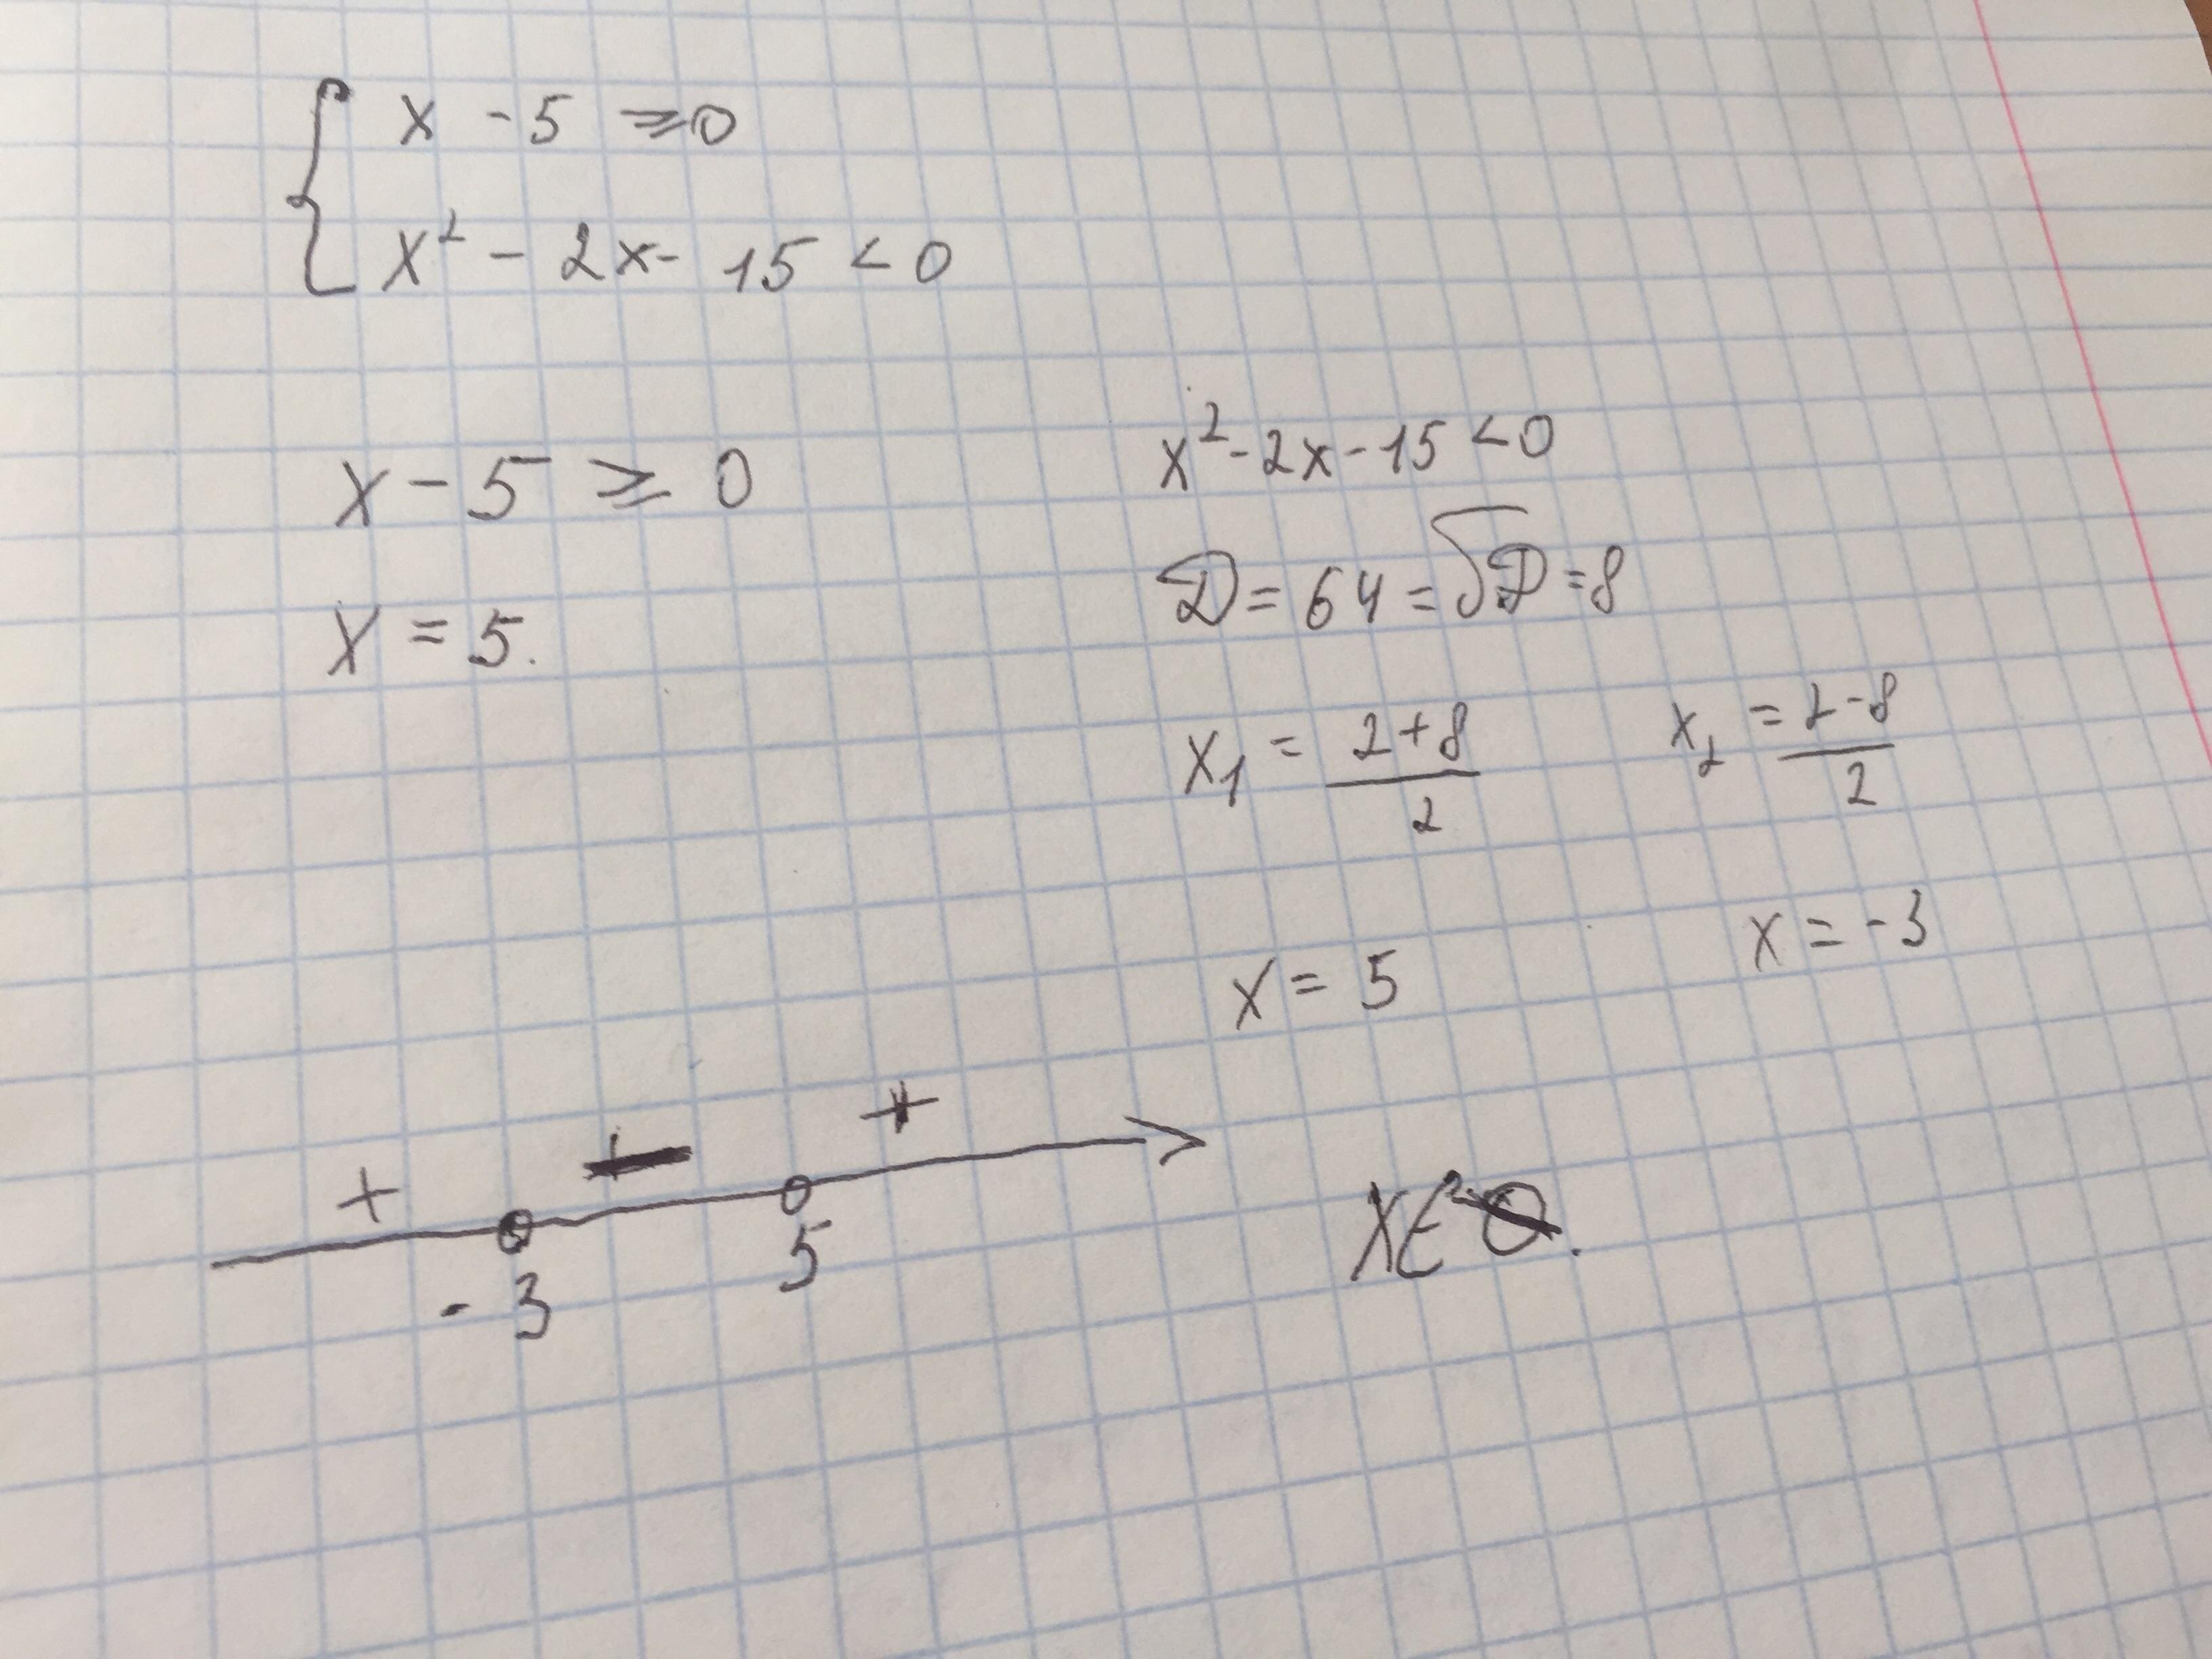 { x - 5 ⩾ 0
x² - 2x - 15 < 0
x - 5 ⩾ 0
x = 5.
x² - 2x - 15 < 0
D = 64 = √D = 8
x₁ = (2+8)/2 x₂ = (2-8)/2
x = 5 x = -3
+ − +
-3 5
x ∈ ∅.